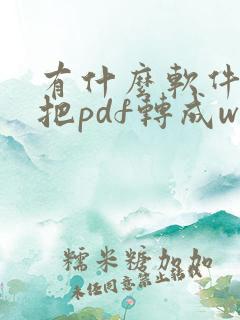 有什麼軟件
把pdf轉成w
糯米糖加加
未任同意禁止轉載